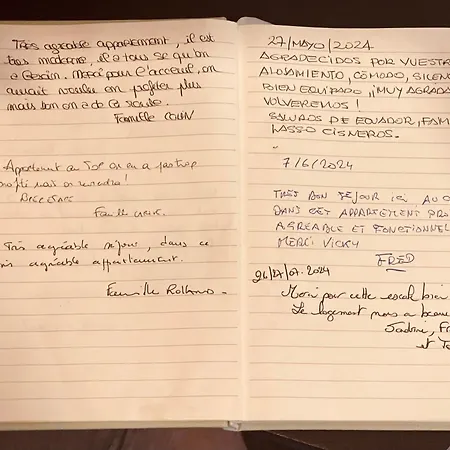 Très agréable appartement, il est
très moderne, il a tous se qu'on
a besoin. Merci pour l'acceuil, on
aurait voulu en profiter plus
mais bon on a de la route.
Famille COLIN
Appartement au TOP on en a pas trop
profité mais on reviendra!
Famille
Très agréable séjour, dans ce
très agréable appartement.
Famille Rolland
27/MAYO/2024
AGRADECIDOS POR VUESTR
ALOJAMIENTO, CÓMODO, SILENC
BIEN EQUIPADO ¡¡MUY AGRADA
VOLVEREMOS!
SALUDOS DE ECUADOR, FAM
LASSO CISNEROS.
7/6/2024
TRÈS BON SÉJOUR ICI, AU CŒ
DANS CET APPARTEMENT PRO
AGRÉABLE ET FONCTIONNEL
MERCI VICKY
FRED
26/27/07.2024
Merci pour cette escale bien
Le logement nous a beauc
Sadrine, Fr
et To